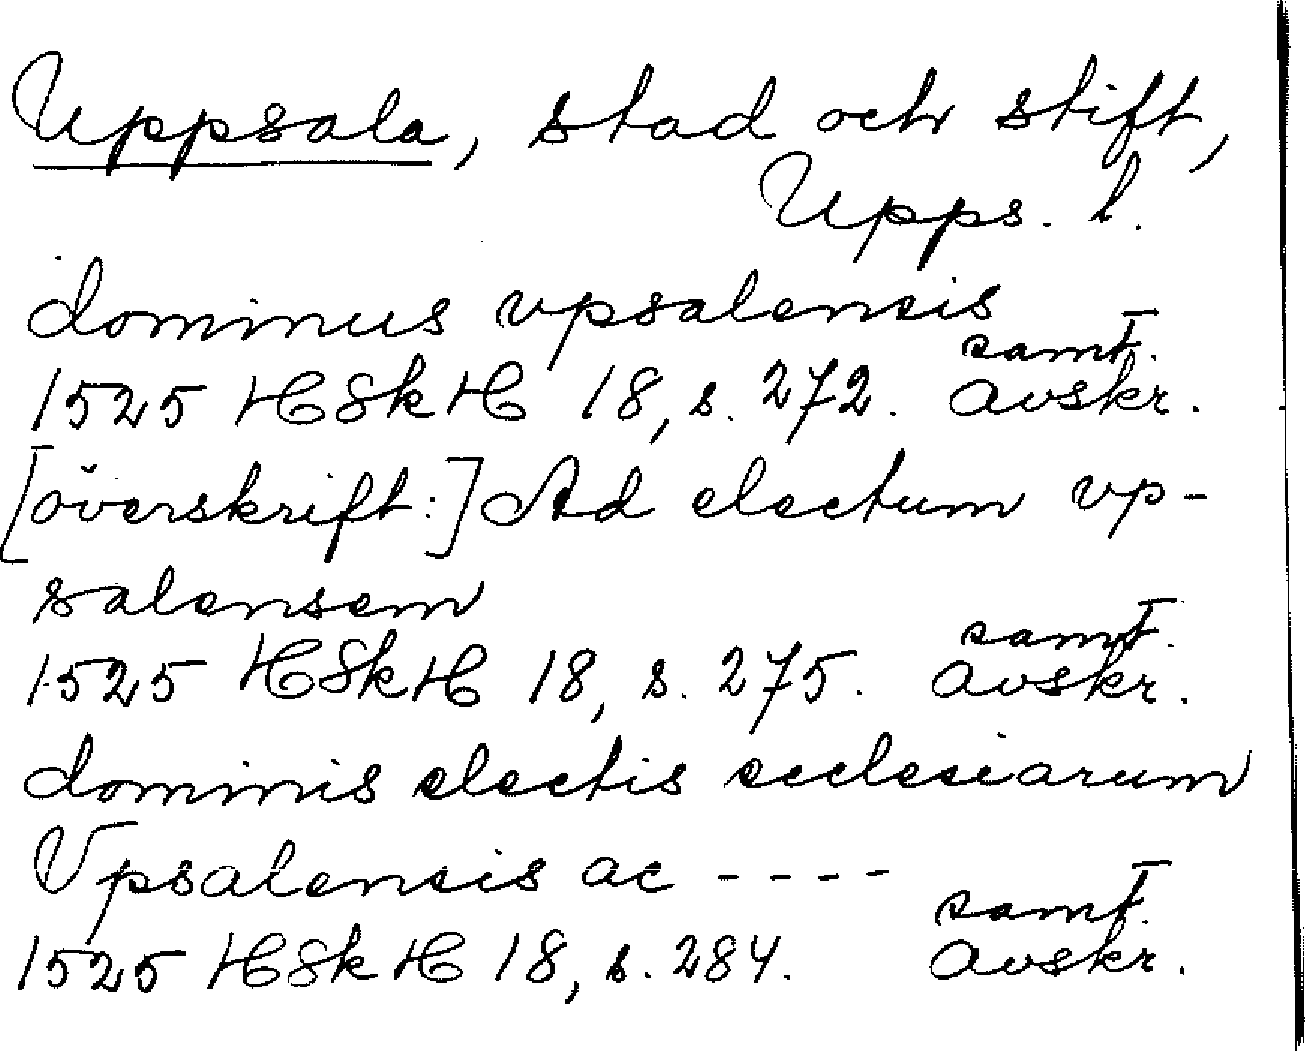 Uppsala, stad och stift,
Upps. l.
dominus vpsalensis
samt.
1525 HSkH 18, s. 272. avskr.
[överskrift:] Ad electum vp-
salensem
samt.
1525 HSkH 18, s. 275. avskr.
dominis electis ecclesiarum
Vpsalensis ac ----
samt.
1525 HSkH 18, s. 284. avskr.